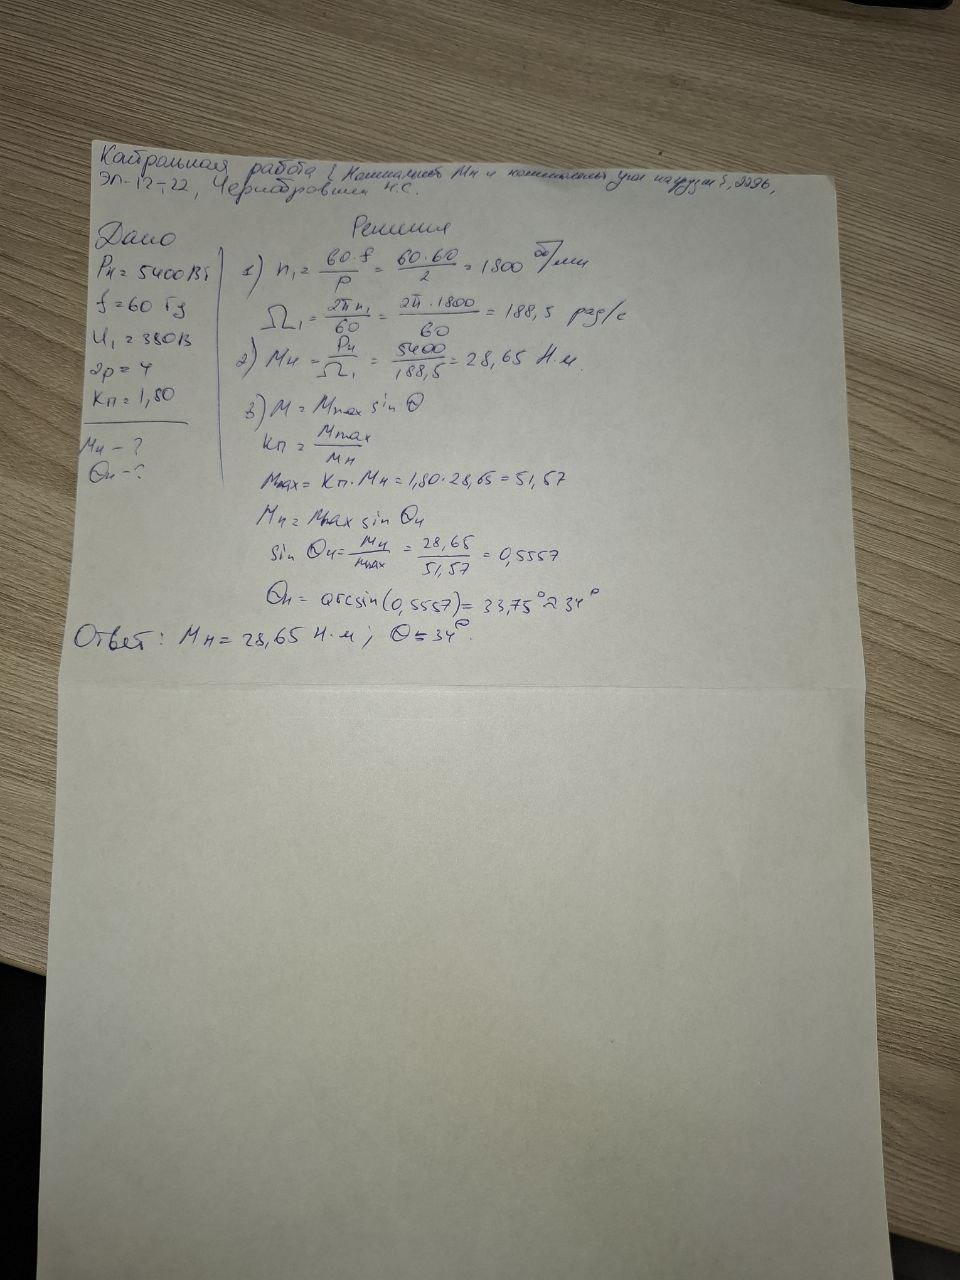 Контрольная работа { Номинальность Мн и номинальн угол нагрузки }, 2296,
ЭП-12-22, Н.С.
Дано
Pн = 5400Вт
f = 60 Гц
U₁ = 380В
2p = 4
Kп = 1,80
Mн - ?
Θн - ?
Решения
1) n₁ = 60·f/p = 60·60/2 = 1800 об/мин
Ω₁ = 2πn₁/60 = 2π·1800/60 = 188,5 рад/с
2) Mн = Pн/Ω₁ = 5400/188,5 = 28,65 Н.м.
3) M = Mmax sin Θ
Kп = Mmax/Mн
Mmax = Kп·Mн = 1,80·28,65 = 51,57
Mн = Mmax sin Θн
sin Θн = Mн/Mmax = 28,65/51,57 = 0,5557
Θн = arcsin(0,5557) = 33,75° ≈ 34°
Ответ: Mн = 28,65 Н·м; Θ = 34°.